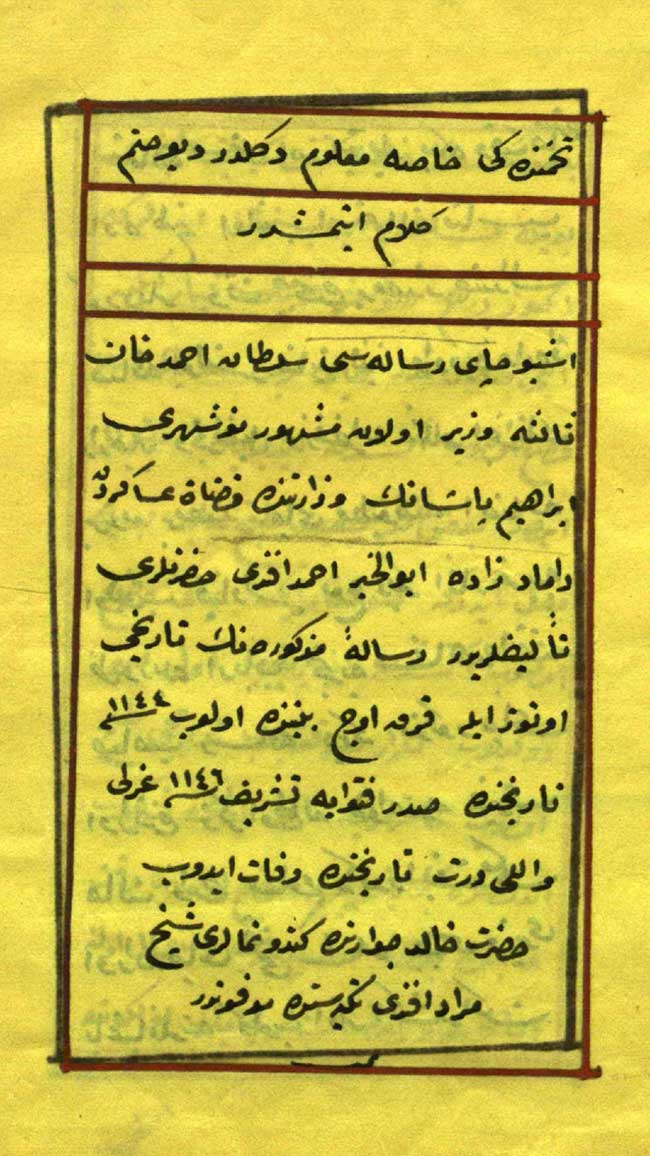 تخمنده كی خاصه معلوم دكلدر دیو ختم
كلام ایتمشدر
اشبو چای رساله سی سلطان احمد خان
ثالثه وزیر اولان مشهور نوشهرلی
ابراهیم پاشانك وزارتنده قضاة عساكردن
داماد زاده ابوالخیر احمد افندی حضرتلری
تألیفلریدر رسالهٔ مذكوره نك تاریخی
اوتوز ایله قرق اوچ بیننده اولوب ١١٤٤
تاریخنده صدر فتوایه تشریف ١١٤٦ عزلی
واللی درت تاریخنده وفات ایدوب
حضرت خالد جوارنده كندو بنالری شیخ
مراد افندی تكیه سنده مدفوندر